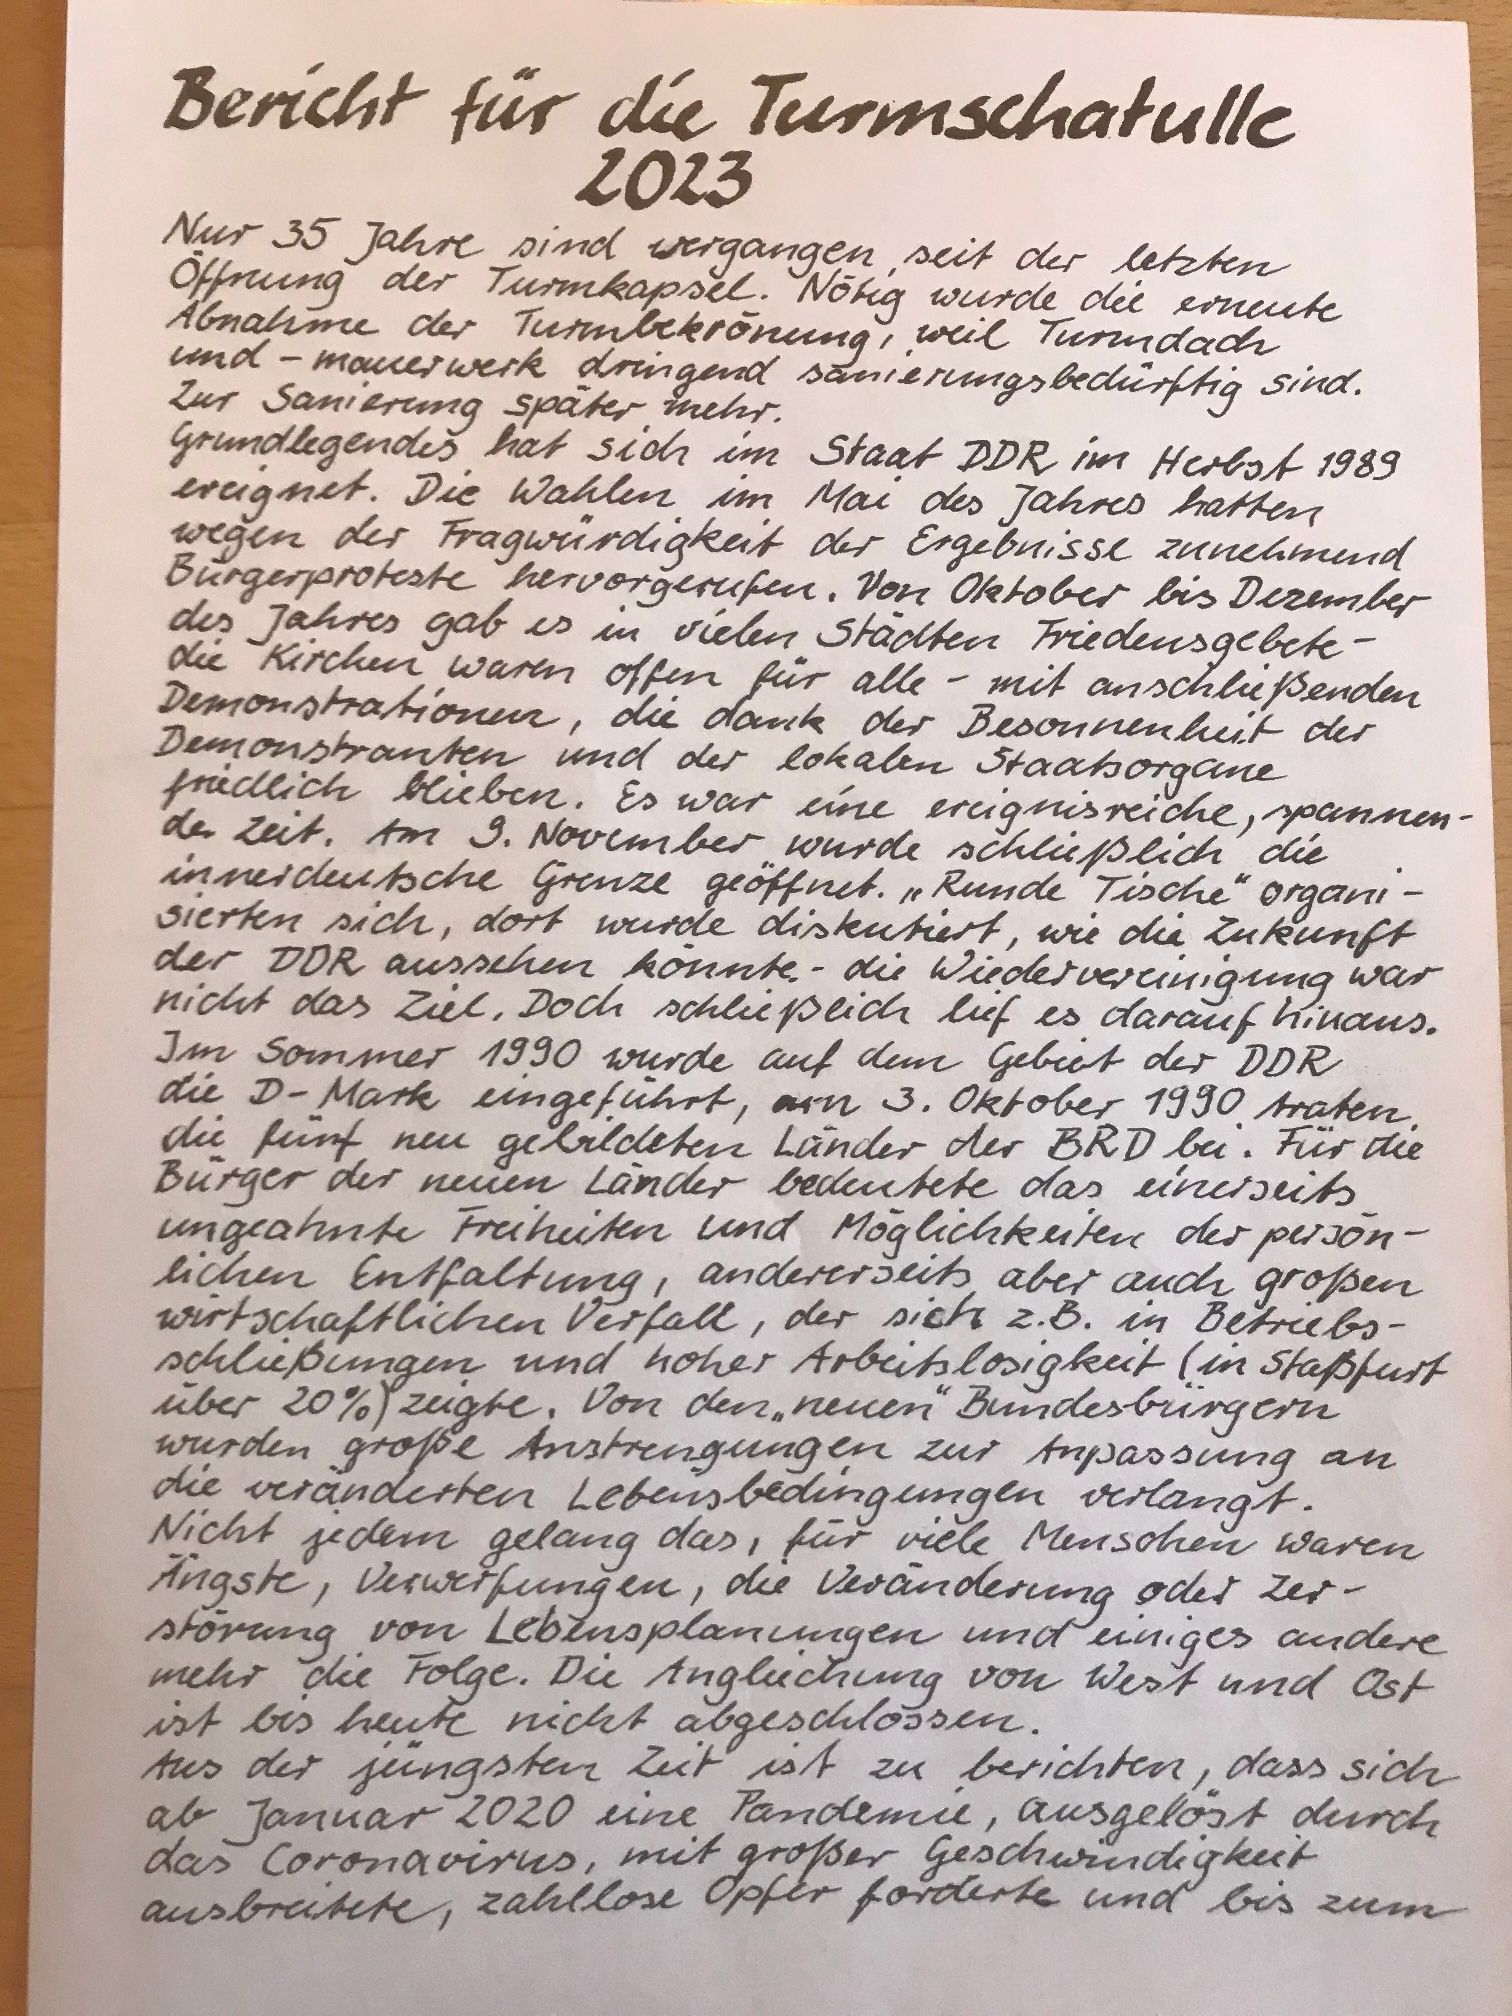 Bericht für die Turmschatulle
2023
Nur 35 Jahre sind vergangen seit der letzten
Öffnung der Turmkapsel. Nötig wurde die erneute
Abnahme der Turmbekrönung, weil Turmdach
und -mauerwerk dringend sanierungsbedürftig sind.
Zur Sanierung später mehr.
Grundlegendes hat sich im Staat DDR im Herbst 1989
ereignet. Die Wahlen im Mai des Jahres hatten
wegen der Fragwürdigkeit der Ergebnisse zunehmend
Bürgerproteste hervorgerufen. Von Oktober bis Dezember
des Jahres gab es in vielen Städten Friedensgebete -
die Kirchen waren offen für alle - mit anschließenden
Demonstrationen, die dank der Besonnenheit der
Demonstranten und der lokalen Staatsorgane
friedlich blieben. Es war eine ereignisreiche, spannen-
de Zeit. Am 9. November wurde schließlich die
innerdeutsche Grenze geöffnet. „Runde Tische" organi-
sierten sich, dort wurde diskutiert, wie die Zukunft
der DDR aussehen könnte - die Wiedervereinigung war
nicht das Ziel. Doch schließlich lief es darauf hinaus.
Im Sommer 1990 wurde auf dem Gebiet der DDR
die D-Mark eingeführt, am 3. Oktober 1990 traten
die fünf neu gebildeten Länder der BRD bei. Für die
Bürger der neuen Länder bedeutete das einerseits
ungeahnte Freiheiten und Möglichkeiten der persön-
lichen Entfaltung, andererseits aber auch großen
wirtschaftlichen Verfall, der sich z.B. in Betriebs-
schließungen und hoher Arbeitslosigkeit (in Staßfurt
über 20%) zeigte. Von den „neuen" Bundesbürgern
wurden große Anstrengungen zur Anpassung an
die veränderten Lebensbedingungen verlangt.
Nicht jedem gelang das, für viele Menschen waren
Ängste, Verwerfungen, die Veränderung oder Zer-
störung von Lebensplanungen und einiges andere
mehr die Folge. Die Angleichung von West und Ost
ist bis heute nicht abgeschlossen.
Aus der jüngsten Zeit ist zu berichten, dass sich
ab Januar 2020 eine Pandemie, ausgelöst durch
das Coronavirus, mit großer Geschwindigkeit
ausbreitete, zahllose Opfer forderte und bis zum